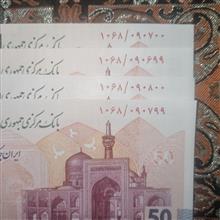 ۱۰۶۸/۰۹۰۷۰۰
بانک مرکزی جمهوری
۱۰۶۸/۰۹۰۶۹۹
بانک مرکزی جمهوری
۱۰۶۸/۰۹۰۸۰۰
بانک مرکزی جمهوری
۱۰۶۸/۰۹۰۷۹۹
بانک مرکزی جمهوری
ایران
50
50